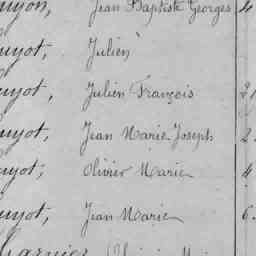 uyon, Jean Baptiste Georges 4
uyot, Julien
uyot, Julien François 2
uyot, Jean Marie Joseph 2
uyot, Olivier Marie 4
uyot, Jean Marie 6
Garnier